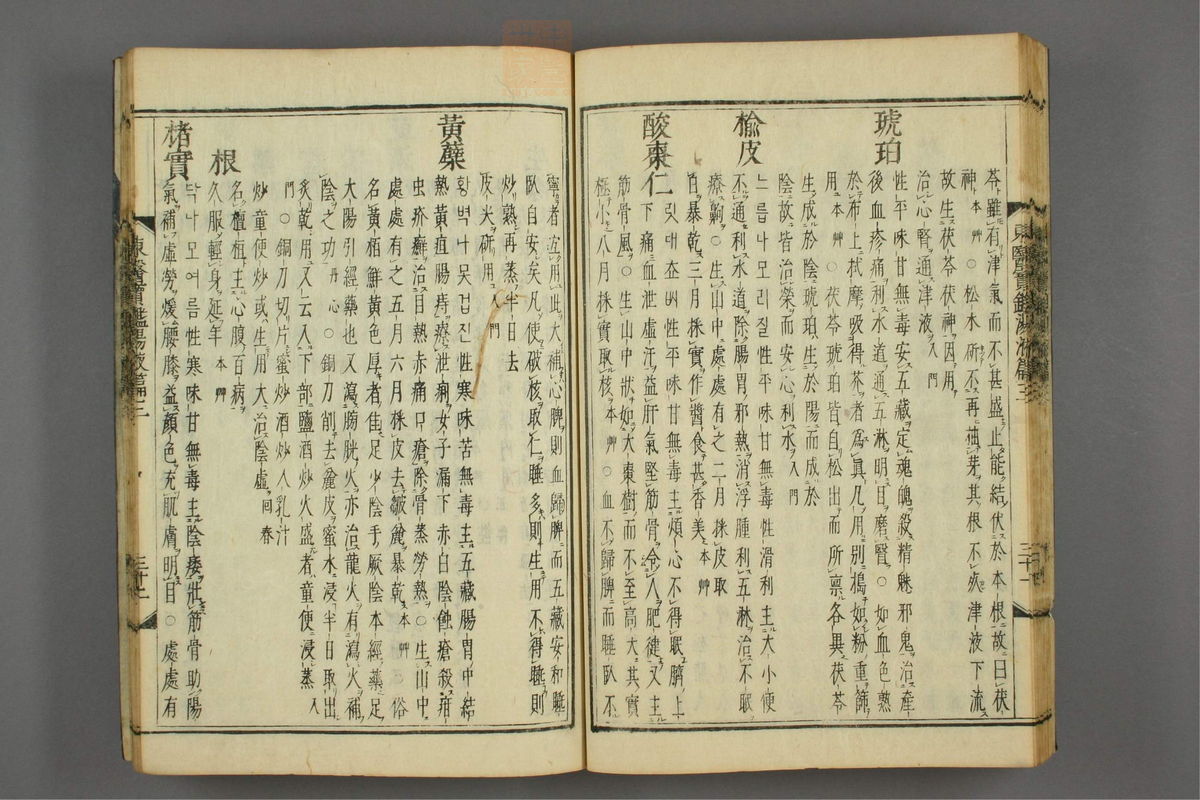 苓雖有津氣而不甚盛止能結伏於本根故曰茯
神 本草 ○松木斫不再抽芽其根不死津液下流
故生茯苓茯神因用
治心腎通津液 入門
琥珀
性平味甘無毒安五藏定魂魄殺精魅邪鬼治産
後血疹痛利水道通五淋明目磨瞖○如血色熟
於布上拭摩吸得芥者爲眞凡用別搗如粉重篩
用 本草 ○茯苓琥珀皆自松出而所禀各異茯苓
生成於陰琥珀生於陽而成於
陰故皆治榮而安心利水 入門
楡皮
느릅나모겁질性平味甘無毒性滑利主大小便
不通利水道除腸胃邪熱消浮腫利五淋治不眠
療齁○生山中處處有之二月採皮取
白暴乾三月採實作醬食甚香美 本草
酸棗仁
묏대초삐性平味甘無毒主煩心不得眠臍上
下痛血泄虛汗益肝氣堅筋骨令人肥健又主
筋骨風○生山中狀如大棗樹而不至高大其實
極小八月採實取核 本草 ○血不歸脾而睡臥不
寧者宜用此大補心脾則血歸脾而五藏安和睡
臥自安矣凡使破核取仁睡多則生用不得睡則
炒熟再蒸半日去
皮尖硏用 入門
黃蘗
황벽나못겁질性寒味苦無毒主五藏腸胃中結
熱黃疸腸痔療泄痢女子漏下赤白陰蝕瘡殺疳
虫疥癬治目熱赤痛口瘡除骨蒸勞熱○生山中
處處有之五月六月採皮去皺麁暴乾 本草 俗
名黃栢鮮黃色厚者佳足少陰手厥陰本經藥足
大陽引經藥也又瀉膀胱火亦治龍火有瀉火補
陰之功 丹心 ○銅刀削去麁皮蜜水浸半日取出
灸乾用又云入下部鹽酒炒火盛者童便浸蒸 入
門 ○銅刀切片蜜炒酒炒人乳汁
炒童便炒或生用大治陰虛 回春
根
名檀桓主心腹百病
久服輕身延年 本草
楮實
닥나모여름性寒味甘無毒主陰痿壯筋骨助陽
氣補虛勞煖腰膝益顔色充肌膚明目○處處有